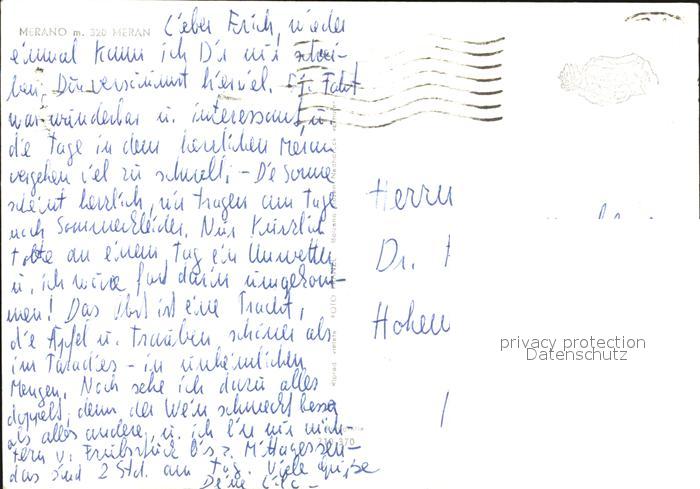 MERANO m. 320 MERAN
Lieber Erich, wieder
einmal kann ich Dir nur schrei-
ben, Du versäumst hier viel. Die Fahrt
war wunderbar u. interessant, u.
die Tage in dem herrlichen Meran
vergehen viel zu schnell; – Die Sonne
scheint herrlich, wir tragen am Tage
noch Sommerkleider. Nur kürzlich
tobte an einem Tag ein Unwetter
u. ich wäre fast darin umgekom-
men! Das Obst ist eine Pracht,
die Äpfel u. Trauben schöner als
im Paradies – in unheimlichen
Mengen. Noch sehe ich dazu alles
doppelt, denn der Wein schmeckt besser
als alles andere, u. ich bin nur nüch-
tern v. Frühstück bis z. Mittagessen –
das sind 2 Std. am Tag. Viele Grüsse
Deine
Herrn
Dr.
Hohen
privacy protection
Datenschutz